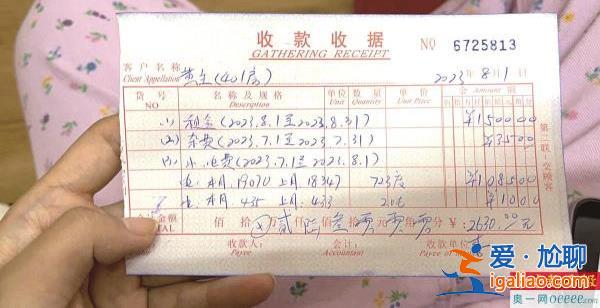 收款收据
GATHERING RECEIPT
NO 6725813
客户名称
Client Appellation 黄生(401房)
2023年8月1日
货号 名称及规格 单位 数量 单价 金额 Amount
NO Description Unit Quantity Unit Price
(1) 租金(2023.8.1至2023.8.31) ¥150000
(2) 杂费(2023.7.1至2023.7.31) ¥3500
(3) 水、电费(2023.7.1至2023.8.1)
电:本月:19070 上月:18347 723度 ¥108500
本月:435 上月:433 2吨 ¥1000
金额 佰 拾 万 贰仟陆佰叁拾零元零角零分 ¥:2630.00元
TOTAL
收款人: 会计: 收款单位
Payee Accountant Payee of
第二联:交顾客
爱·尴聊
igaliao.com
奥一网oeeee.com